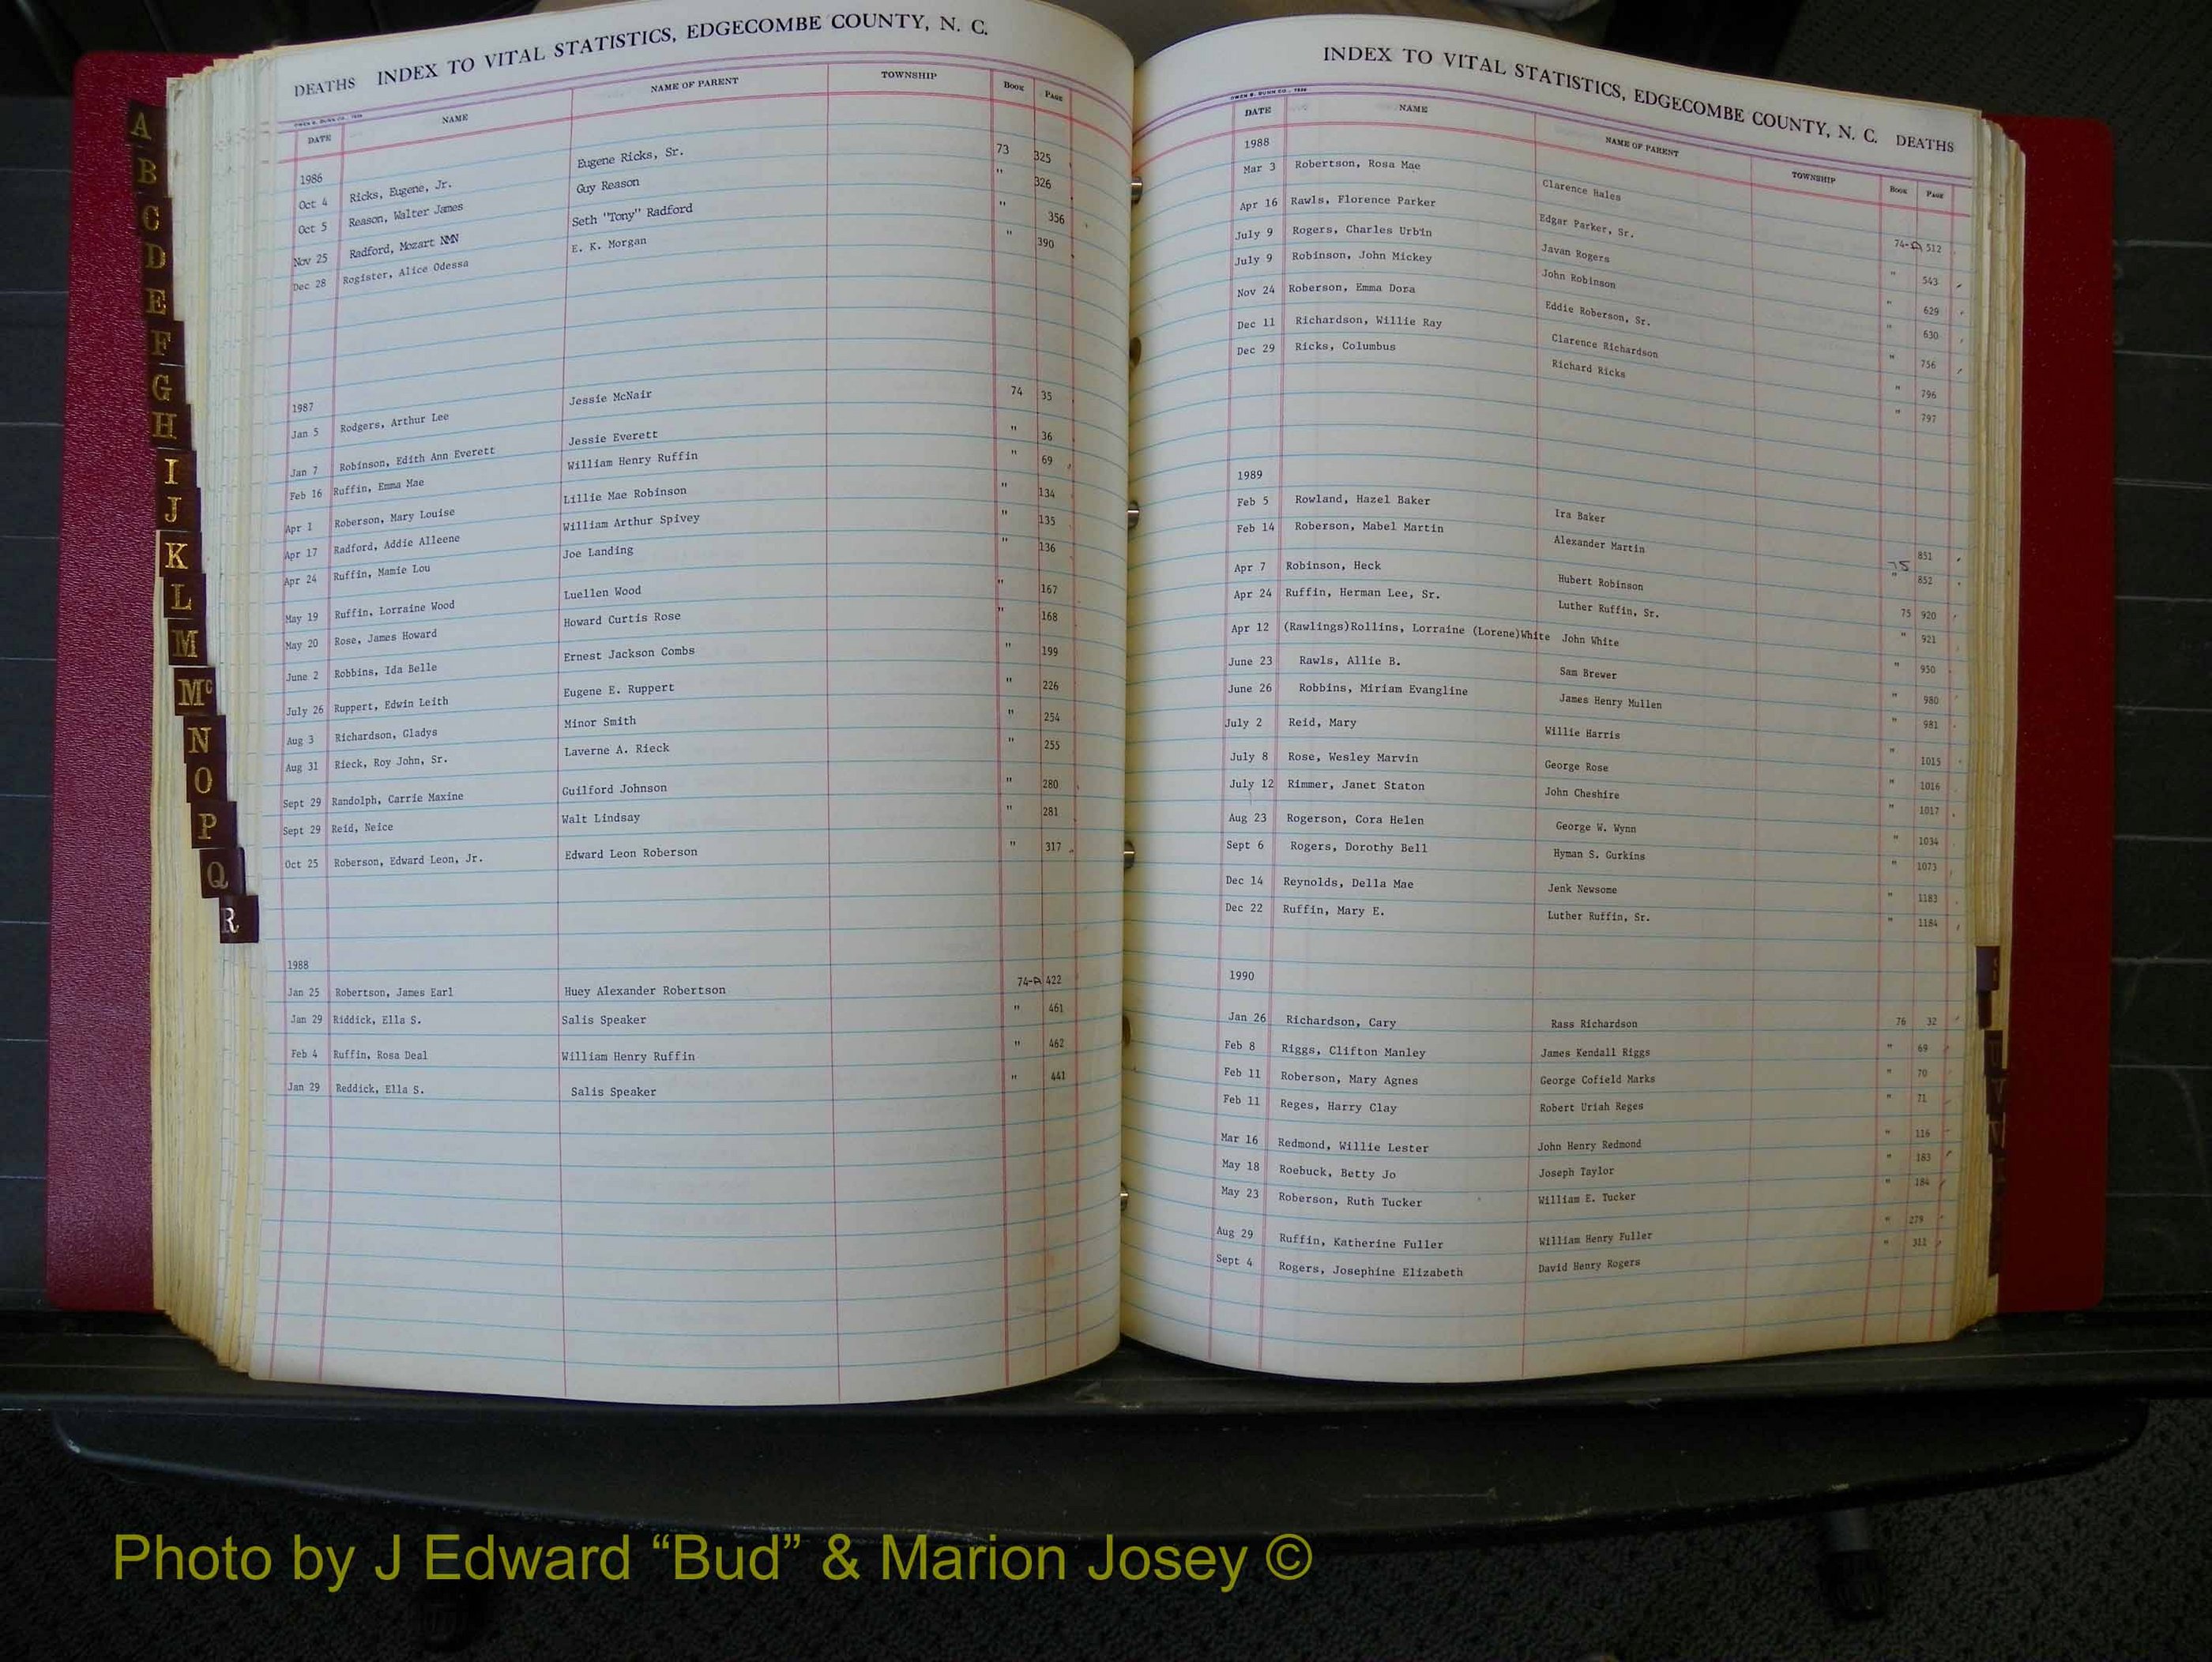 DEATHS INDEX TO VITAL STATISTICS, EDGECOMBE COUNTY, N. C.
DATE NAME NAME OF PARENT TOWNSHIP BOOK PAGE
1986
Oct 4 Ricks, Eugene, Jr. Eugene Ricks, Sr. 73 325
Oct 5 Reason, Walter James Guy Reason " 326
Nov 25 Radford, Mozart NMN Seth "Tony" Radford " 356
Dec 28 Rogister, Alice Odessa E. K. Morgan " 390
1987
Jan 5 Rodgers, Arthur Lee Jessie McNair 74 35
Jan 7 Robinson, Edith Ann Everett Jessie Everett " 36
Feb 16 Ruffin, Emma Mae William Henry Ruffin " 69
Apr 1 Roberson, Mary Louise Lillie Mae Robinson " 134
Apr 17 Radford, Addie Alleene William Arthur Spivey " 135
Apr 24 Ruffin, Mamie Lou Joe Landing " 136
May 19 Ruffin, Lorraine Wood Luellen Wood " 167
May 20 Rose, James Howard Howard Curtis Rose " 168
June 2 Robbins, Ida Belle Ernest Jackson Combs " 199
July 26 Ruppert, Edwin Leith Eugene E. Ruppert " 226
Aug 3 Richardson, Gladys Minor Smith " 254
Aug 31 Rieck, Roy John, Sr. Laverne A. Rieck " 255
Sept 29 Randolph, Carrie Maxine Guilford Johnson " 280
Sept 29 Reid, Neice Walt Lindsay " 281
Oct 25 Roberson, Edward Leon, Jr. Edward Leon Roberson " 317
1988
Jan 25 Robertson, James Earl Huey Alexander Robertson 74-A 422
Jan 29 Riddick, Ella S. Salis Speaker " 461
Feb 4 Ruffin, Rosa Deal William Henry Ruffin " 462
Jan 29 Reddick, Ella S. Salis Speaker " 441
A
B
C
D
E
F
G
H
I
J
K
L
M
Mc
N
O
P
Q
R
INDEX TO VITAL STATISTICS, EDGECOMBE COUNTY, N. C. DEATHS
DATE NAME NAME OF PARENT TOWNSHIP BOOK PAGE
1988
Mar 3 Robertson, Rosa Mae Clarence Hales 74-A 512
Apr 16 Rawls, Florence Parker Edgar Parker, Sr. " 543
July 9 Rogers, Charles Urbin Javan Rogers " 629
July 9 Robinson, John Mickey John Robinson " 630
Nov 24 Roberson, Emma Dora Eddie Roberson, Sr. " 756
Dec 11 Richardson, Willie Ray Clarence Richardson " 796
Dec 29 Ricks, Columbus Richard Ricks " 797
1989
Feb 5 Rowland, Hazel Baker Ira Baker 75 851
Feb 14 Roberson, Mabel Martin Alexander Martin " 852
Apr 7 Robinson, Heck Hubert Robinson 75 920
Apr 24 Ruffin, Herman Lee, Sr. Luther Ruffin, Sr. " 921
Apr 12 (Rawlings)Rollins, Lorraine (Lorene)White John White " 950
June 23 Rawls, Allie B. Sam Brewer " 980
June 26 Robbins, Miriam Evangline James Henry Mullen " 981
July 2 Reid, Mary Willie Harris " 1015
July 8 Rose, Wesley Marvin George Rose " 1016
July 12 Rimmer, Janet Staton John Cheshire " 1017
Aug 23 Rogerson, Cora Helen George W. Wynn " 1034
Sept 6 Rogers, Dorothy Bell Hyman S. Gurkins " 1073
Dec 14 Reynolds, Della Mae Jenk Newsome " 1183
Dec 22 Ruffin, Mary E. Luther Ruffin, Sr. " 1184
1990
Jan 26 Richardson, Cary Rass Richardson 76 32
Feb 8 Riggs, Clifton Manley James Kendall Riggs " 69
Feb 11 Roberson, Mary Agnes George Cofield Marks " 70
Feb 11 Reges, Harry Clay Robert Uriah Reges " 71
Mar 16 Redmond, Willie Lester John Henry Redmond " 116
May 18 Roebuck, Betty Jo Joseph Taylor " 183
May 23 Roberson, Ruth Tucker William E. Tucker " 184
Aug 29 Ruffin, Katherine Fuller William Henry Fuller " 279
Sept 4 Rogers, Josephine Elizabeth David Henry Rogers " 311
Photo by J Edward “Bud” & Marion Josey ©